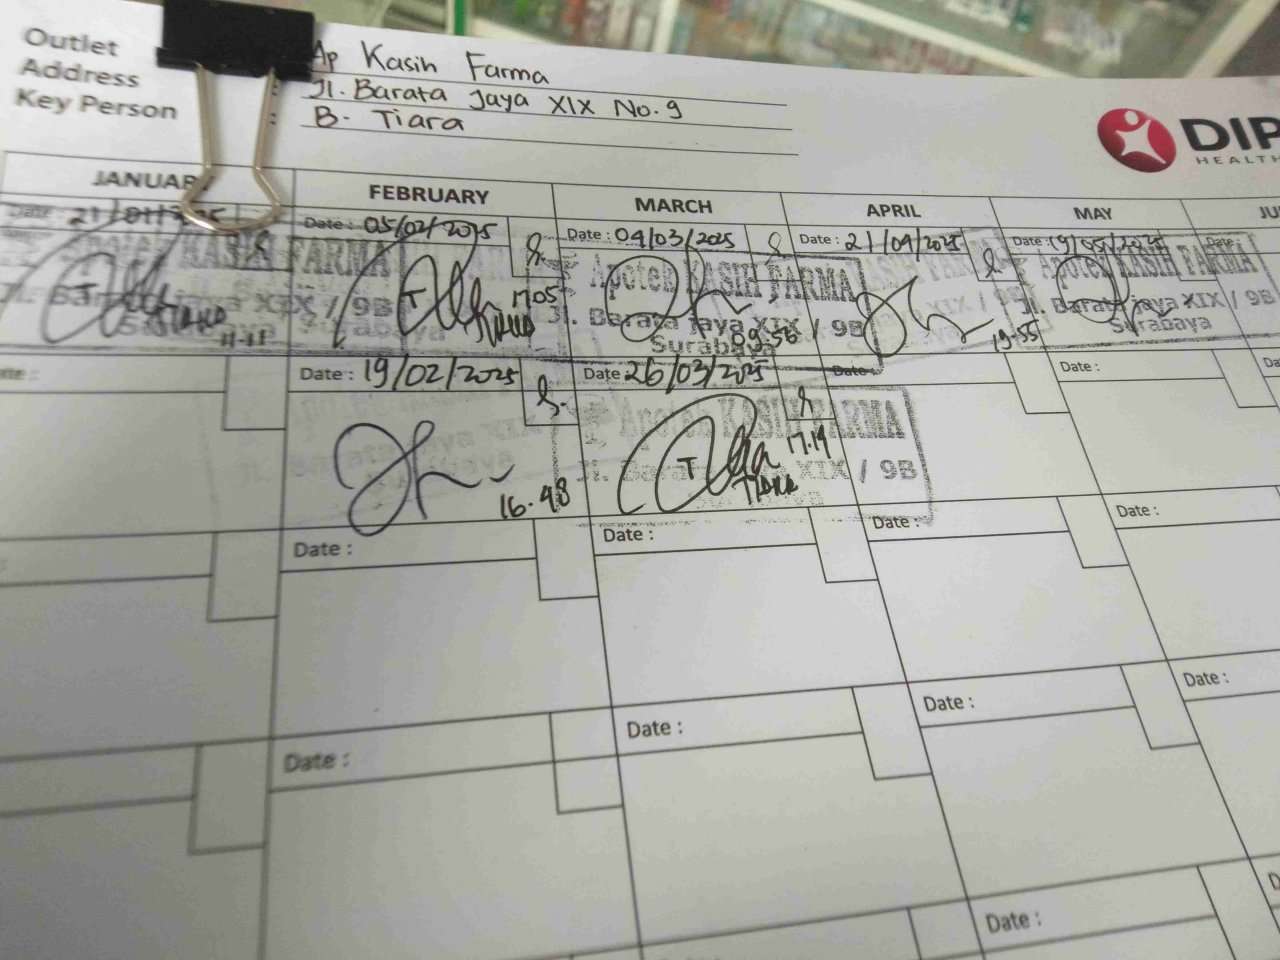 Outlet
Address
Key Person
Ap Kasih Farma
: Jl. Barata Jaya XIX No. 9
: B. Tiara
DIP
HEALTH
JANUAR
FEBRUARY
MARCH
APRIL
MAY
JU
Date : 21/01/2025
Date : 05/02/2025
Date : 04/03/2025
Date : 21/04/2025
Date : 19/05/2025
Date :
Apotek KASIH FARMA
Jl. Barata Jaya XIX / 9B
Surabaya
TIARA
11.15
T
TIARA
17.05
Apotek KASIH FARMA
Jl. Barata jaya XIX / 9B
Surabaya
09.56
19.55
Apotek KASIH FARMA
Jl. Barata jaya XIX / 9B
Surabaya
Date :
Date : 19/02/2025
Date 26/03/2025
Date :
Date :
Date :
16.48
Apotek KASIH FARMA
Jl. Barata jaya XIX / 9B
T
17.19
TIARA
Date :
Date :
Date :
Date :
Date :
Date :
Date :
Date :
Date :